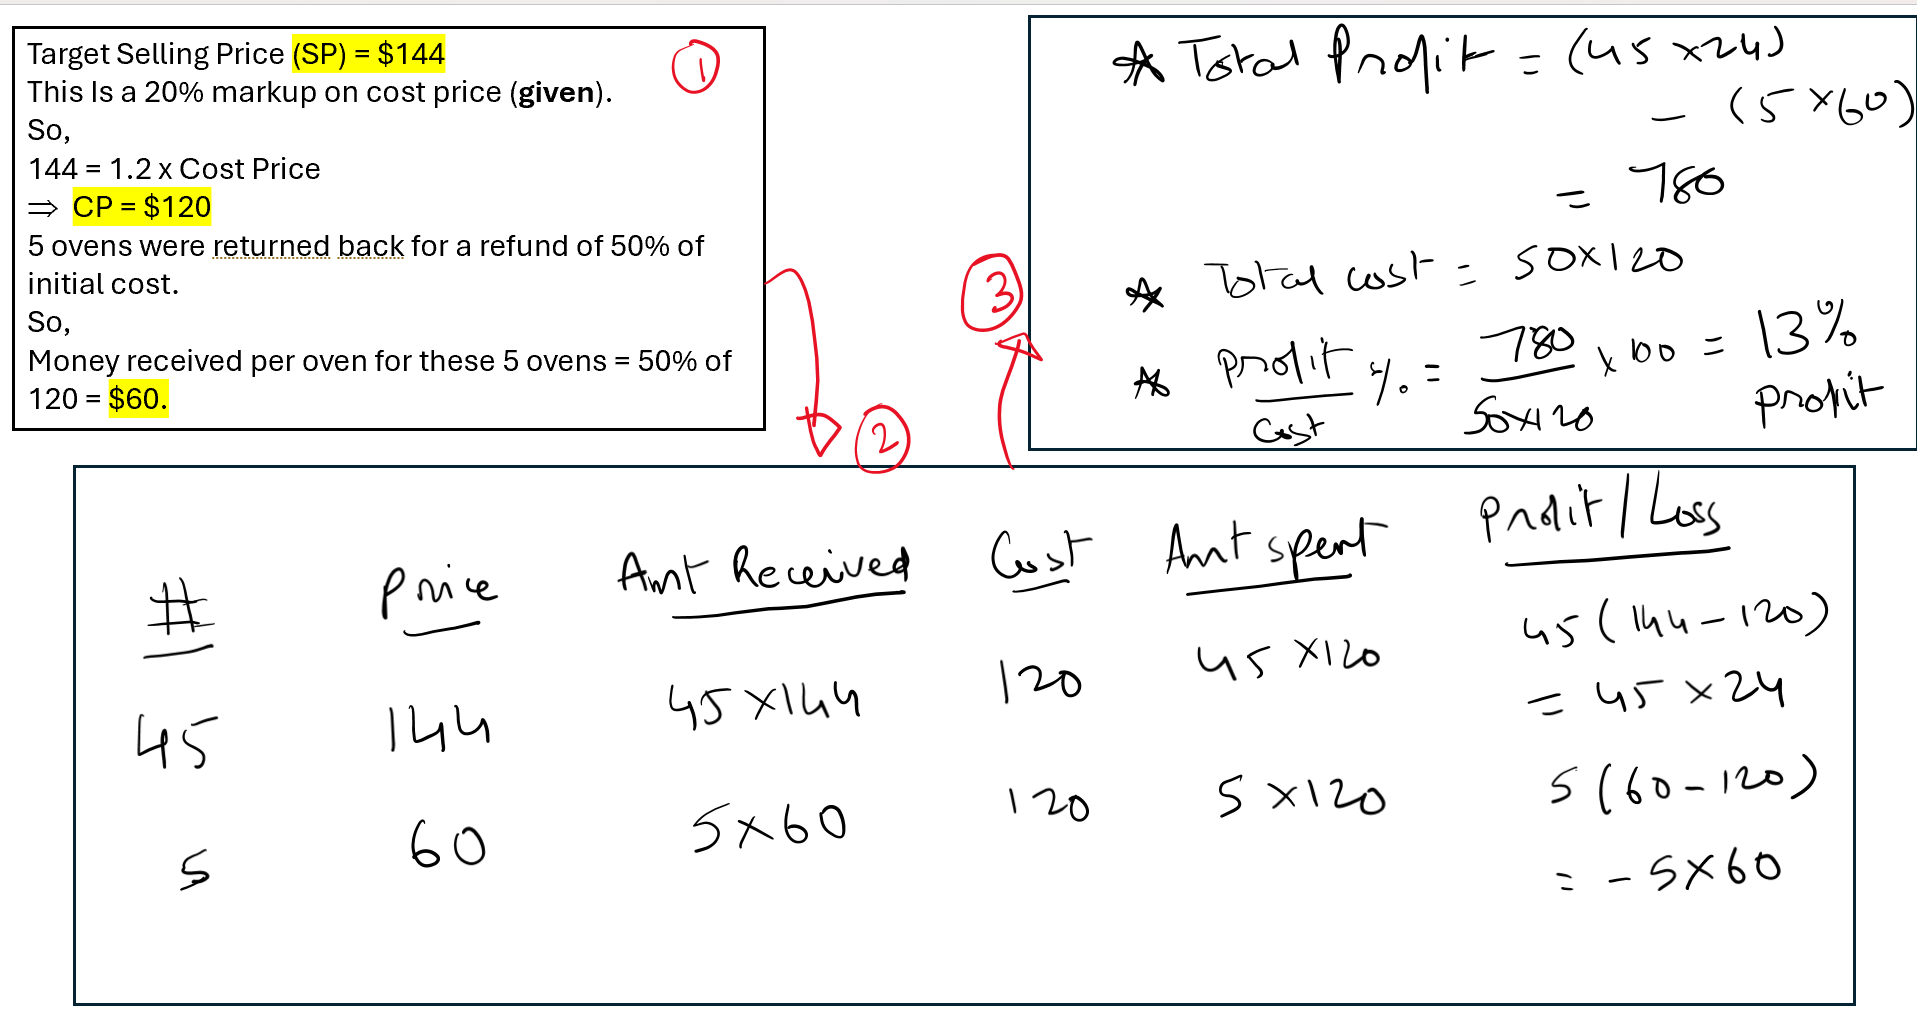 Target Selling Price (SP) = $144
This Is a 20% markup on cost price (given).
So,
144 = 1.2 x Cost Price
⇒ CP = $120
5 ovens were returned back for a refund of 50% of
initial cost.
So,
Money received per oven for these 5 ovens = 50% of
120 = $60.
1
2
3
★ Total Profit = (45 x 24)
- (5 x 60)
= 780
★ Total cost = 50 x 120
★ Profit/Cost % = 780/50x120 x 100 = 13% profit
# Price Amt Received Cost Amt spent Profit/Loss
45 144 45 x 144 120 45 x 120 45(144-120)
= 45 x 24
5 60 5 x 60 120 5 x 120 5(60-120)
= - 5 x 60